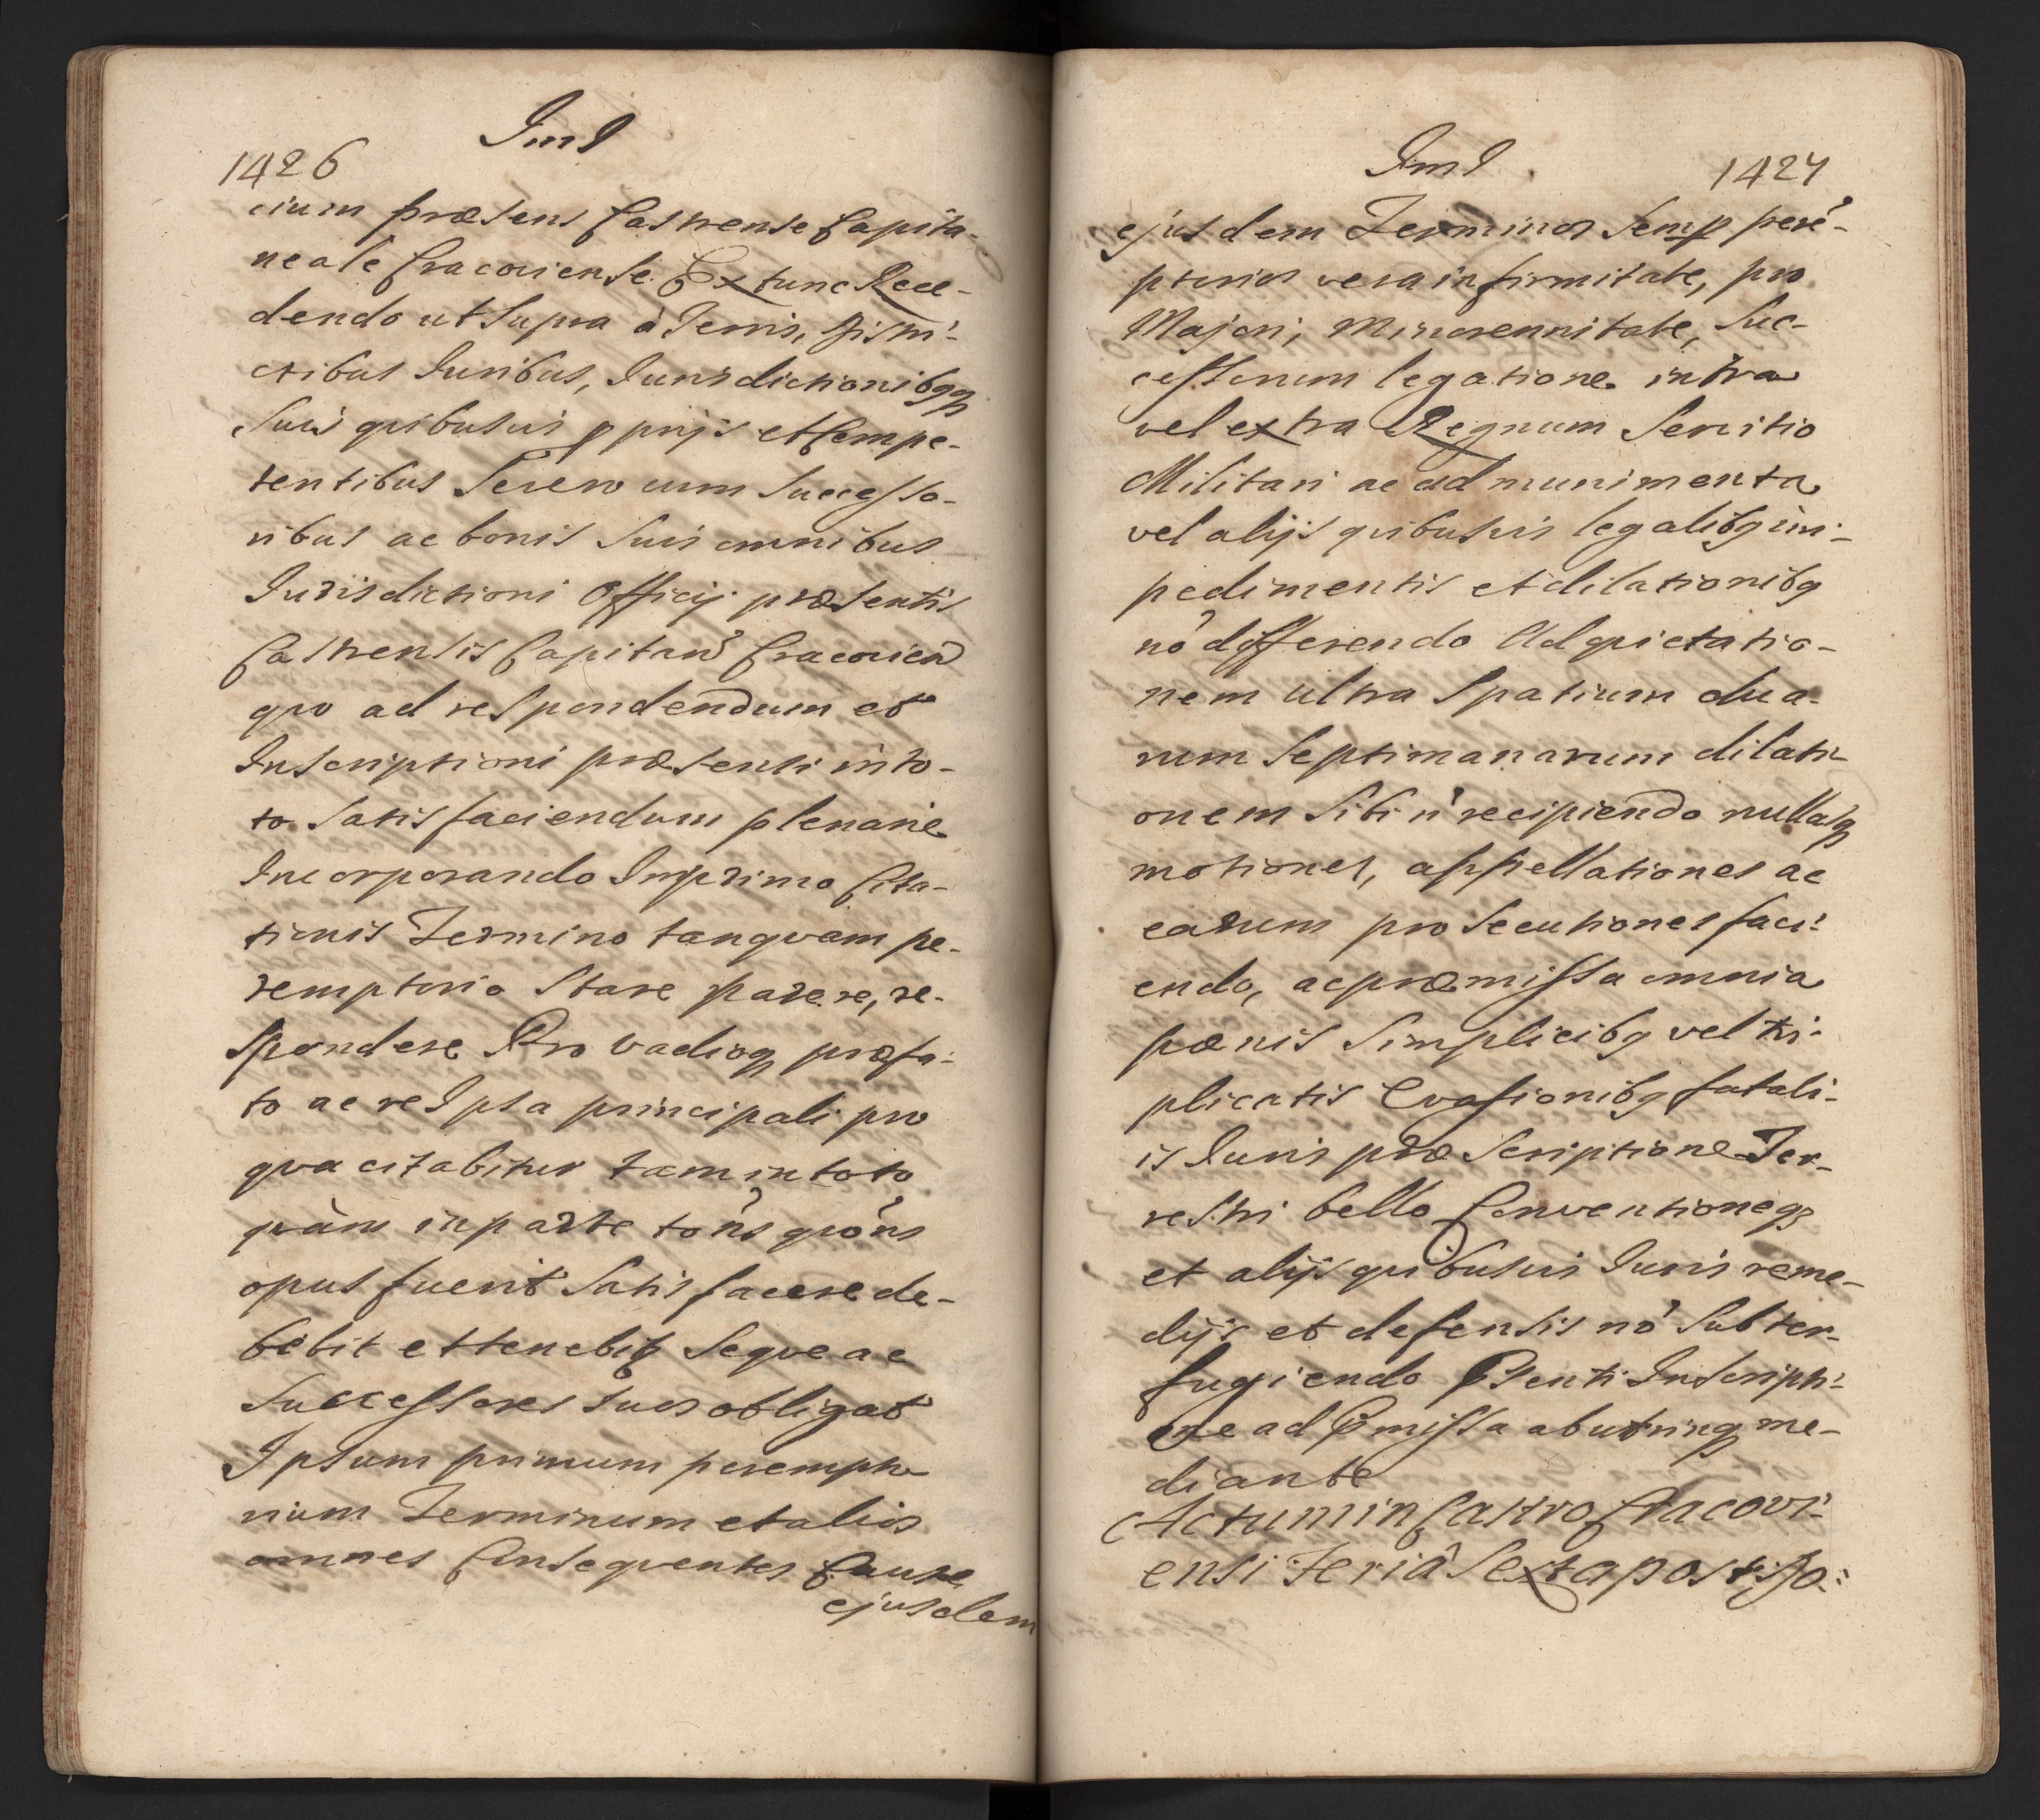 Iml
1426
cium præsens Castrense Capita-
neale Cracoviense. Ex tunc Rece-
dendo ut Supra à Terris, Distri-
ctibus Iuribus, Iurisdictionibqq
Suis quibusvis pprijs et Compe-
tentibus Se vero cum Successo-
ribus ac bonis Suis omnibus
Iurisdictioni Officij præsentis
Castrensis Capitan Cracovien
quo ad respondendum et
Inscriptioni præsenti in to-
to Satisfaciendum plenarie
Incorporando In primo Cita-
tionis Termino tanqvam pe-
remptorio Stare parere, re-
spondere Pro vadioq præfa-
to ac re Ipsa principali pro
qva citabitur tam in toto
qvàm in parte tóns qvóns
opus fuerit Satisfacere de-
bebit et tenebitq Seqve ac
Successores suos obligat
Ipsum primum perempto-
rium Terminum et alios
omnes Conseqventes Causæ
ejusdem
Iml
1427
ejusdem Terminos Semp peré-
ptorios vera infirmitate, pro
Majori, Minorennitate, Suc-
cessorum legatione intra
vel extra Regnum Servitio
Militari ac ad munimenta
vel alijs quibusvis legalibq im-
pedimentis et dilationibq
nó differendo Ad quietatio-
nem ultra Spatium dua-
rum Septimanarum dilati-
onem Sibi ń recipiendo nullasq
motiones, appellationes ac
earum prosecutiones faci-
endo, ac præmissa omnia
pænis Simplicibq vel tri-
plicatis Evasionibq fatali-
is Iuris præscriptione Ter-
restri bello Conventioneqz
et alijs quibusvis Iuris reme-
dijs et defensis nó Subter-
fugiendo Psenti Inscripti-
one ad Pmissa ab utrinq me-
diante
Actum in Castro Cracovi-
ensi Feriâ Sexta post